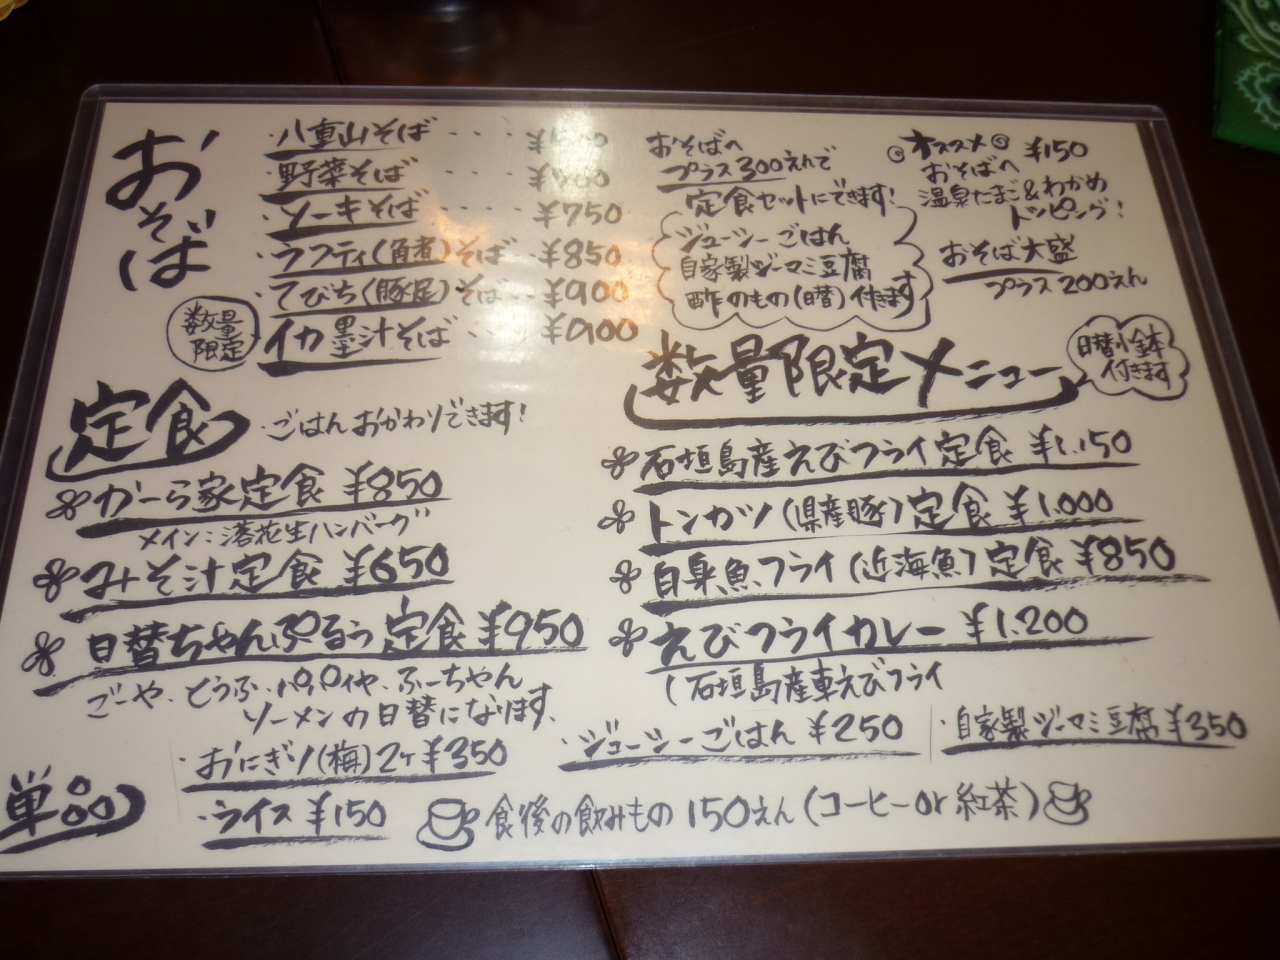 おそば
・八重山そば
・野菜そば
・ソーキそば ¥750
・ラフティ(角煮)そば ¥850
・てびち(豚足)そば ¥900
数量
限定
イカ墨汁そば ¥900
おそばへ
プラス300えんで
定食セットにできます!
ジューシーごはん
自家製ジーマミ豆腐
酢のもの(日替)付きます
オススメ ¥150
おそばへ
温泉たまご&わかめ
トッピング!
おそば大盛
プラス200えん
定食
・ごはんおかわりできます!
かーら家定食 ¥850
メイン:落花生ハンバーグ
みそ汁定食 ¥650
日替ちゃんぷるぅ定食 ¥950
ごーや、とうふ、パパイヤ、ふーちゃん
ソーメンの日替になります、
数量限定メニュー
日替小鉢
付きます
石垣島産えびフライ定食 ¥1,150
トンカツ(県産豚)定食 ¥1,000
白身魚フライ(近海魚)定食 ¥850
えびフライカレー ¥1,200
(石垣島産車えびフライ
単品
・おにぎり(梅)2ケ ¥350
・ジューシーごはん ¥250
・自家製ジーマミ豆腐 ¥350
・ライス ¥150
食後の飲みもの 150えん(コーヒーor紅茶)